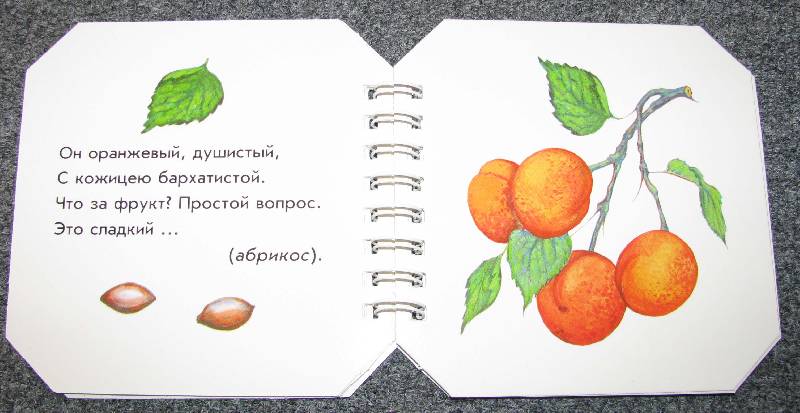 Он оранжевый, душистый,
С кожицею бархатистой.
Что за фрукт? Простой вопрос.
Это сладкий ...
(абрикос).